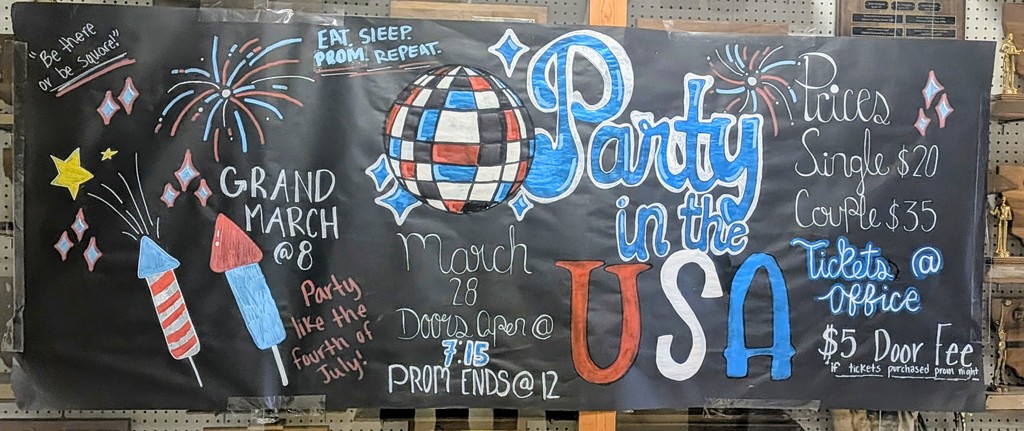 "Be there
or be square!"
EAT. SLEEP.
PROM. REPEAT.
GRAND
MARCH
@8
Party
like the
Fourth of
July!
March
28
Doors Open @
7:15
PROM ENDS@12
Party
in the
USA
Prices
Single $20
Couple $35
Tickets @
office
$5 Door Fee
If tickets purchased prom night